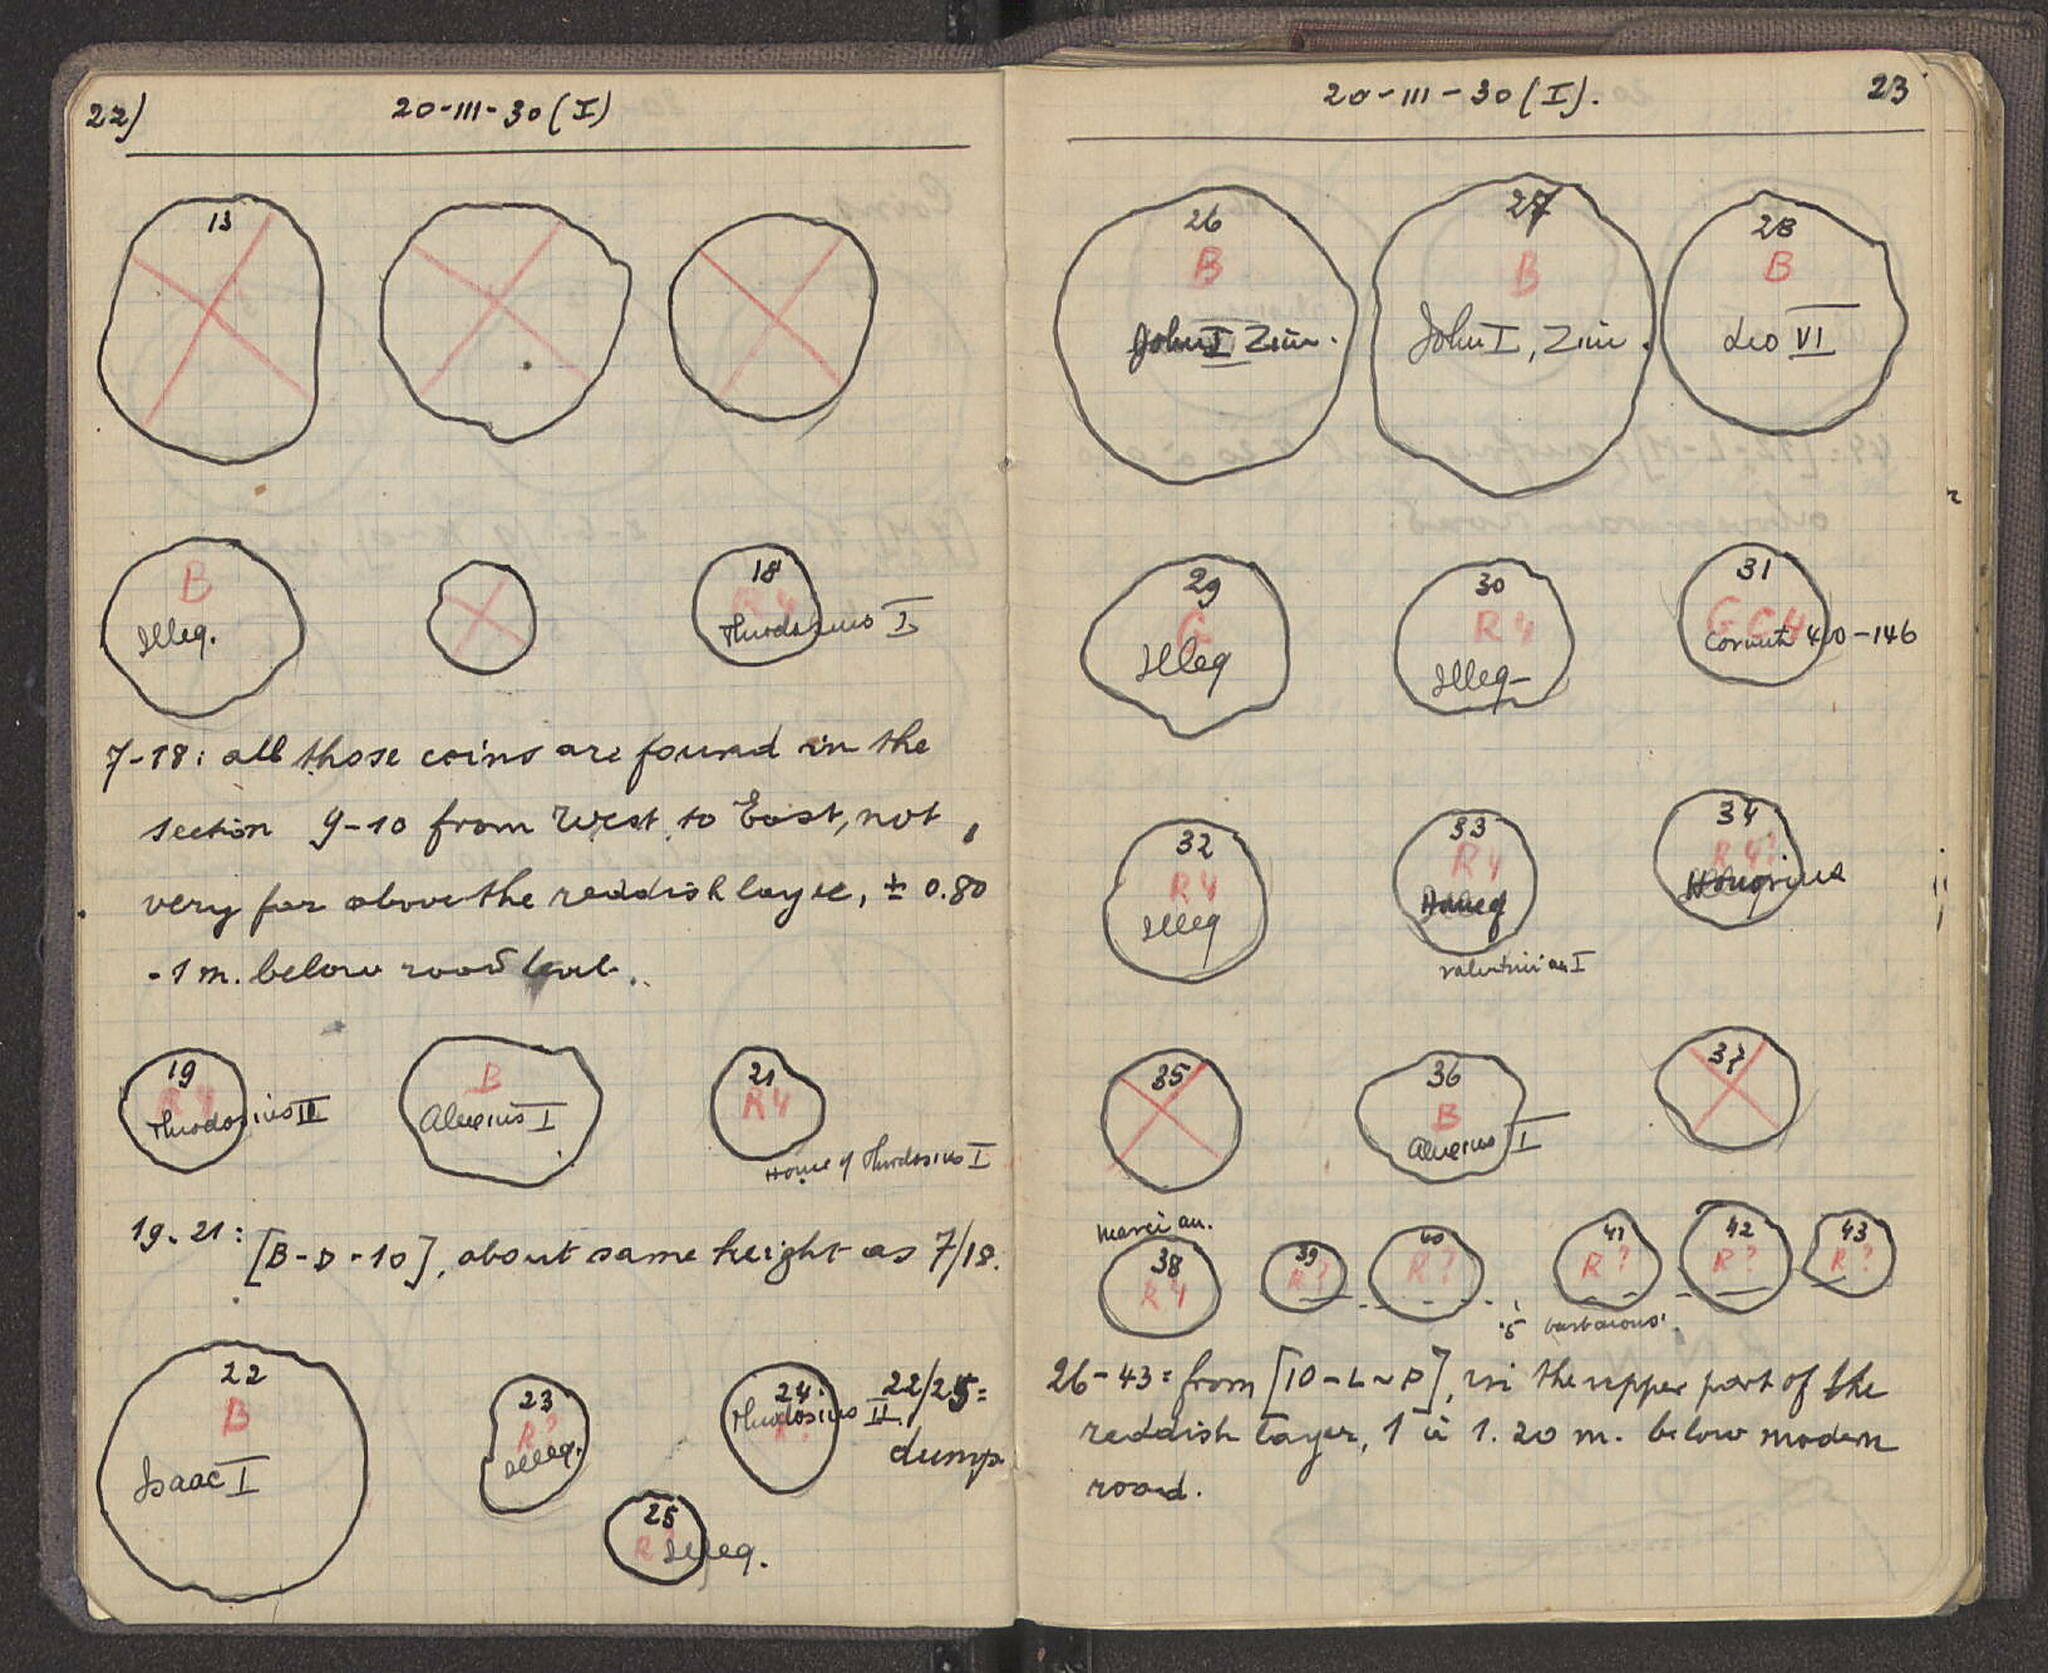 22)
20-III-30 (I)
13
B
Illeg.
18
R 4
Theodosius I
7-18: all those coins are found in the
section 9-10 from West to East, not
very far above the reddish layer, ± 0.80
-1 m. below road level.
19
R 4
Theodosius II
B
Alexius I
21
R 4
House of Theodosius I
19-21: [B-D-10], about same height as 7/18.
22
B
Isaac I
23
R?
Illeg.
24
Theodosius II
22/25=
dump
25
R
Illeg.
20-III-30 (I).
23
26
B
John I Zim.
27
B
John I, Zim.
28
B
Leo VI
29
G
Illeg
30
R 4
Illeg
31
Corinth 400-146
32
R 4
Illeg
33
R 4
Valentinian I
34
R 4?
35
36
B
Alexius I
37
Marcian.
38
R 4
39
R?
40
R?
41
R?
42
R?
43
R?
5
26-43= from [10-L-P], in the upper part of the
reddish layer, 1 à 1.20 m. below modern
road.